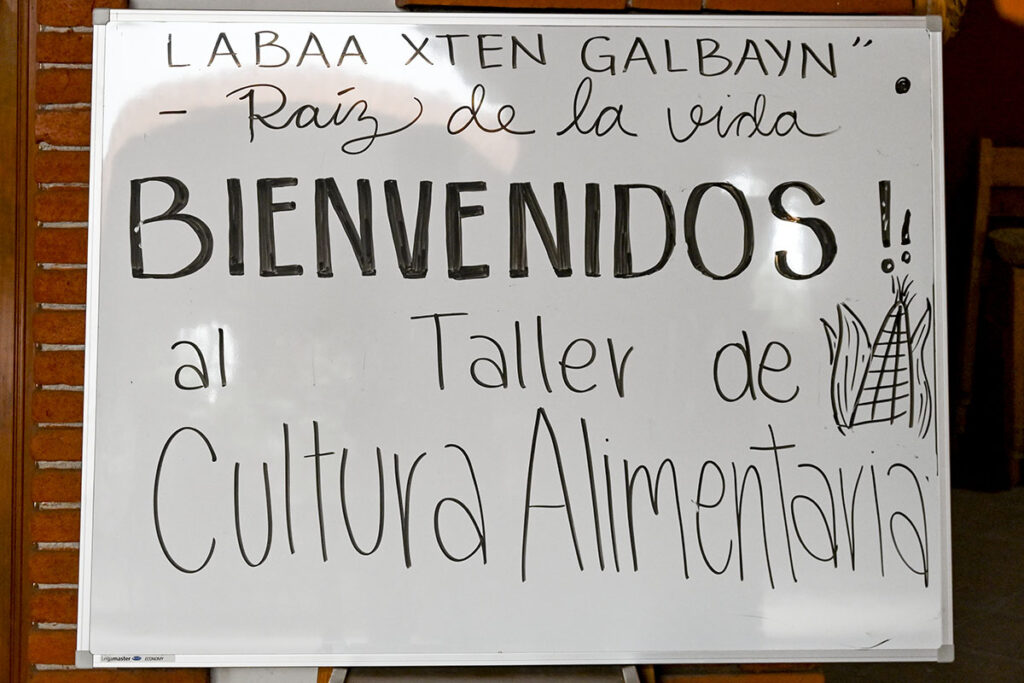 LABAA XTEN GALBAYN"
- Raíz de la vida
BIENVENIDOS!!
al Taller de
Cultura Alimentaria
Legamaster ECONOMY